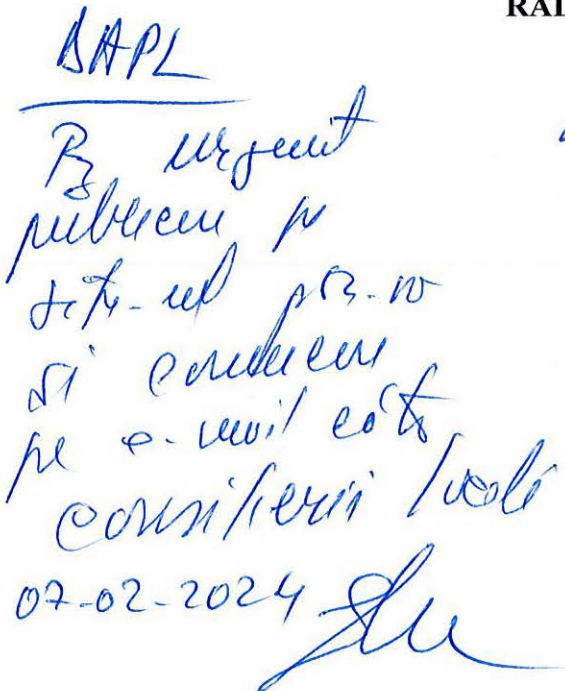 RAI
DAPL
Rg urgent
publicare pe
site-ul ps3.ro
și comunicare
pe e-mail către
consilierii locali
07-02-2024